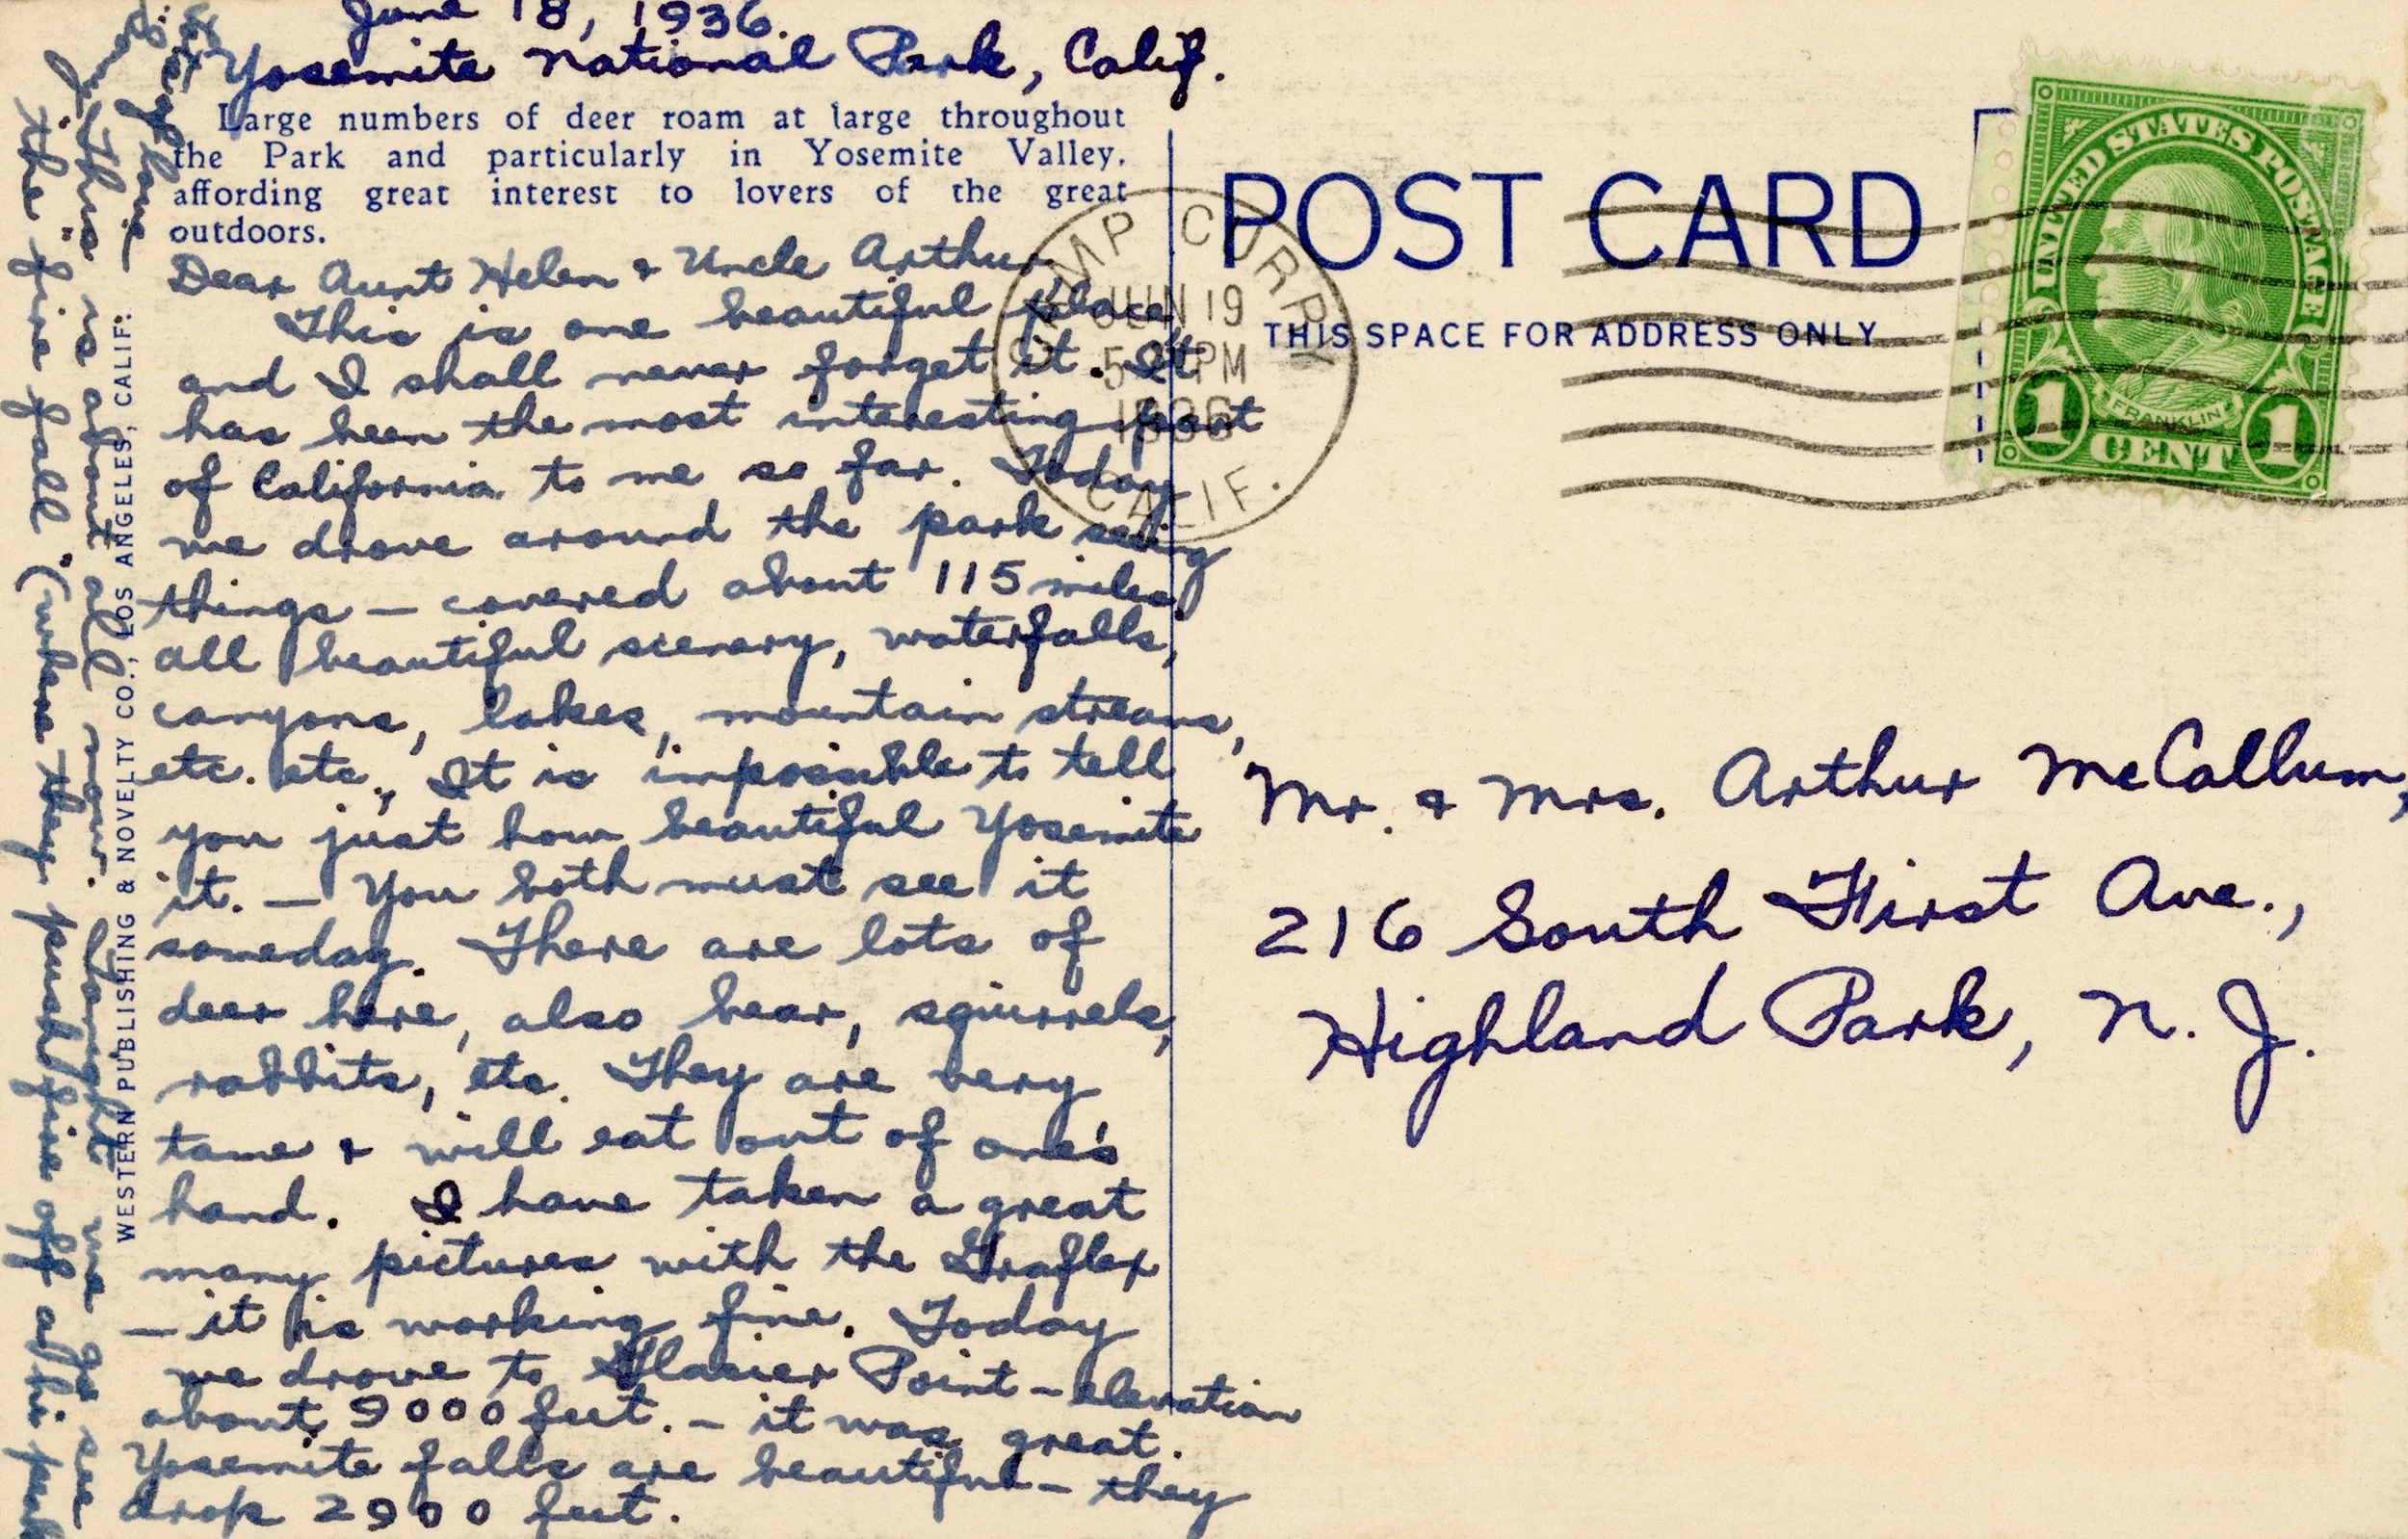 June 18, 1936.
Yosemite National Park, Calif.
Large numbers of deer roam at large throughout
the Park and particularly in Yosemite Valley,
affording great interest to lovers of the great
outdoors.
Dear Aunt Helen & Uncle Arthur
This is one beautiful place
and I shall never forget it. It
has been the most interesting part
of California to me so far. Today
we drove around the park seeing
things — covered about 115 miles,
all beautiful scenery, waterfalls,
canyons, lakes, mountain streams,
etc. etc., It is impossible to tell
you just how beautiful Yosemite
it. — You both must see it
someday. There are lots of
deer here, also bear, squirrels,
rabbits, etc. They are very
tame & will eat out of one's
hand. I have taken a great
many pictures with the Graflex
— it is working fine. Today
we drove to Glacier Point — elevation
about 9000 feet. — it was great.
Yosemite falls are beautiful — they
drop 2900 feet.
This is about all now. Tonight we go see
the "fire fall" (where they push fire off this peak
WESTERN PUBLISHING & NOVELTY CO., LOS ANGELES, CALIF:
CAMP CURRY
JUN 19
5 PM
1936
CALIF.
POST CARD
THIS SPACE FOR ADDRESS ONLY
UNITED STATES POSTAGE
FRANKLIN
1 CENT 1
Mr. & Mrs. Arthur McCallum,
216 South First Ave.,
Highland Park, N. J.